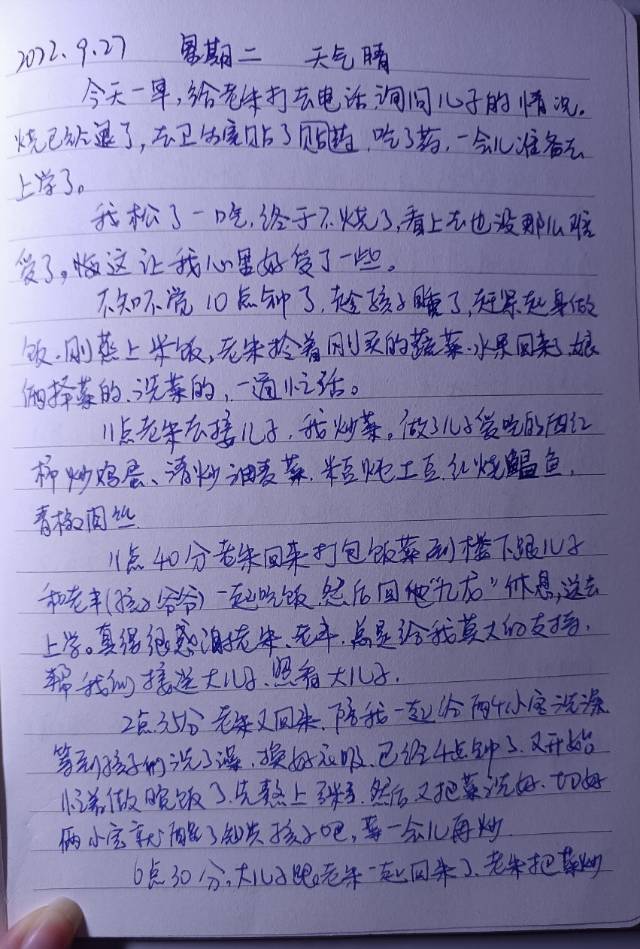 2022.9.27 星期二 天气晴
今天一早,给老朱打去电话询问儿子的情况。
烧已经退了,去卫生室贴了贴药,吃了药,一会儿准备去
上学了。
我松了一口气,终于不烧了,看上去也没那么难
受了。这让我心里好受了一些。
不知不觉10点钟了,孩子睡了,赶紧起身做
饭。刚蒸上米饭,老朱拎着刚买的蔬菜、水果回来,娘
俩择菜的、洗菜的,一通忙活。
11点老朱去接儿子,我炒菜。做了儿子爱吃的西红
柿炒鸡蛋、清炒油麦菜、炖土豆、红烧鲳鱼、
青椒肉丝
11点40分老朱回来打包饭菜到楼下跟儿子
和老丰(孩子爷爷)一起吃饭,然后回他“九龙”休息,送去
上学。真得很感谢老朱、老丰,总是给我莫大的支持,
帮我们接送大儿子、照看大儿子。
2点35分老朱又回来,陪我一起给两个小宝洗澡
等到孩子们洗了澡,换好衣服,已经4点钟了,又开始
忙着做晚饭了,先熬上,然后又把菜洗好、切好
俩小宝就醒了孩子吧,菜一会儿再炒
6点30分,大儿子跟老朱一起回来了,老朱把菜炒